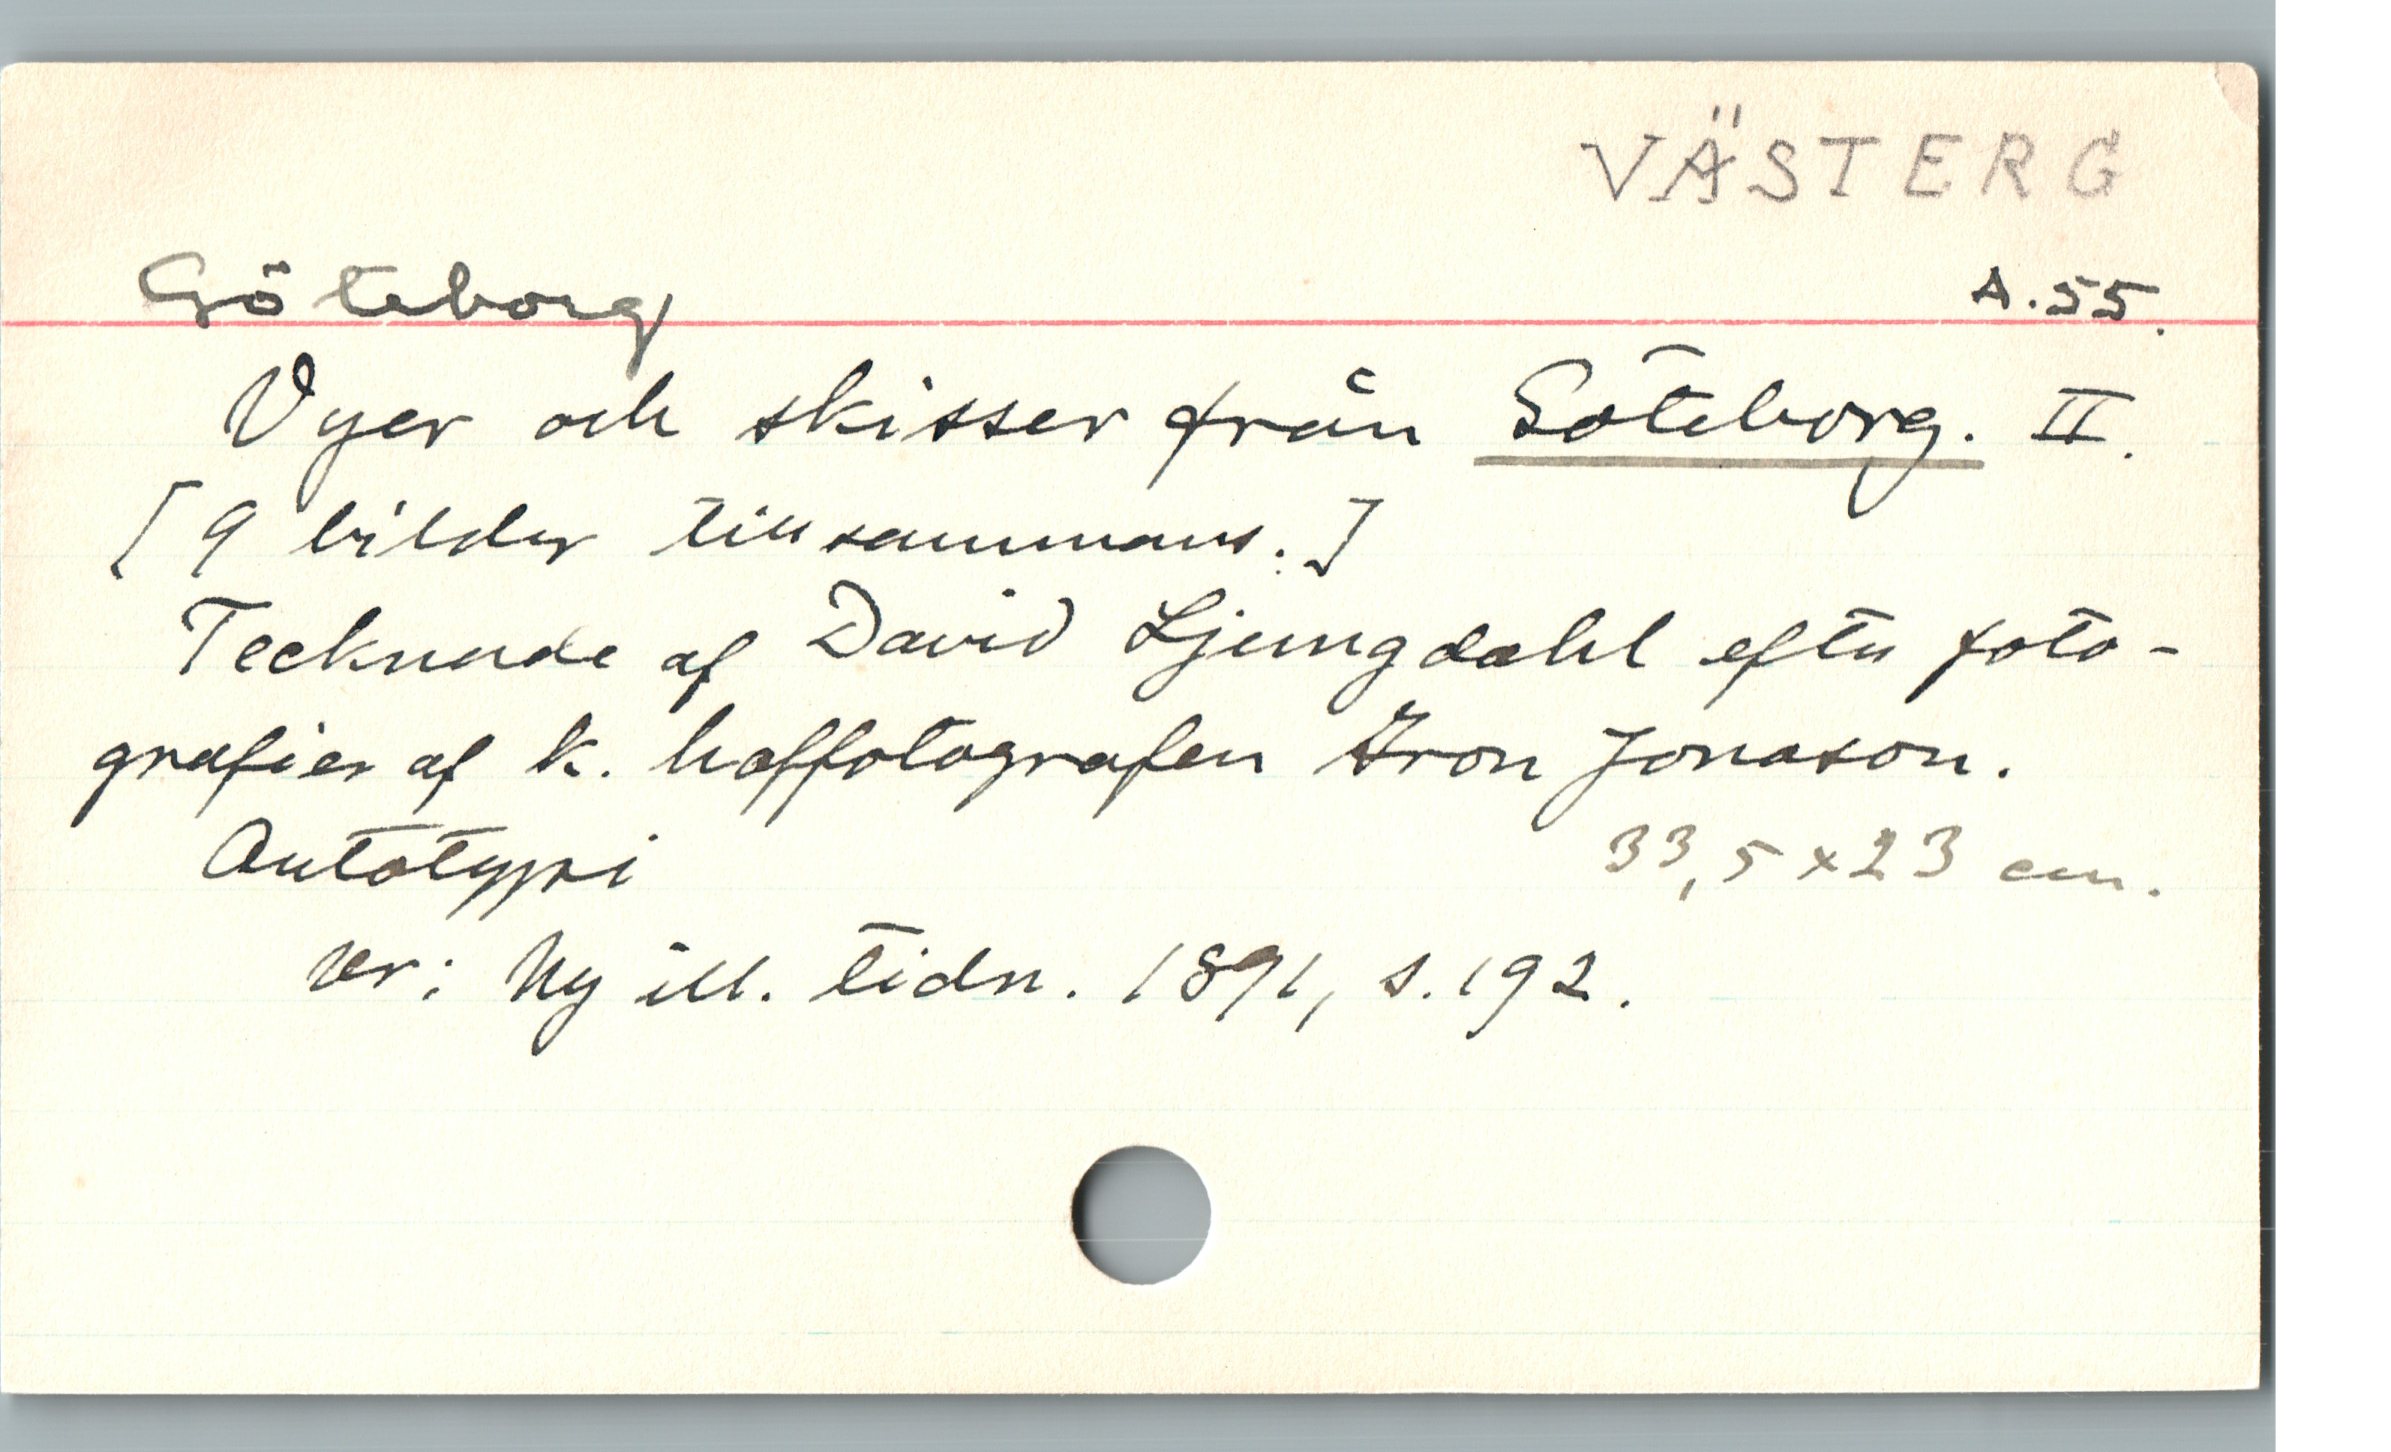 VÄSTERG
Göteborg A.55.
Vyer och skisser från Göteborg. II.
[9 bilder tillsammans.]
Tecknade af David Ljungdahl efter foto-
grafier af k. hoffotografen Aron Jonason.
Autotypi 33,5 x 23 cm.
ur: Ny ill. tidn. 1891, s. 192.